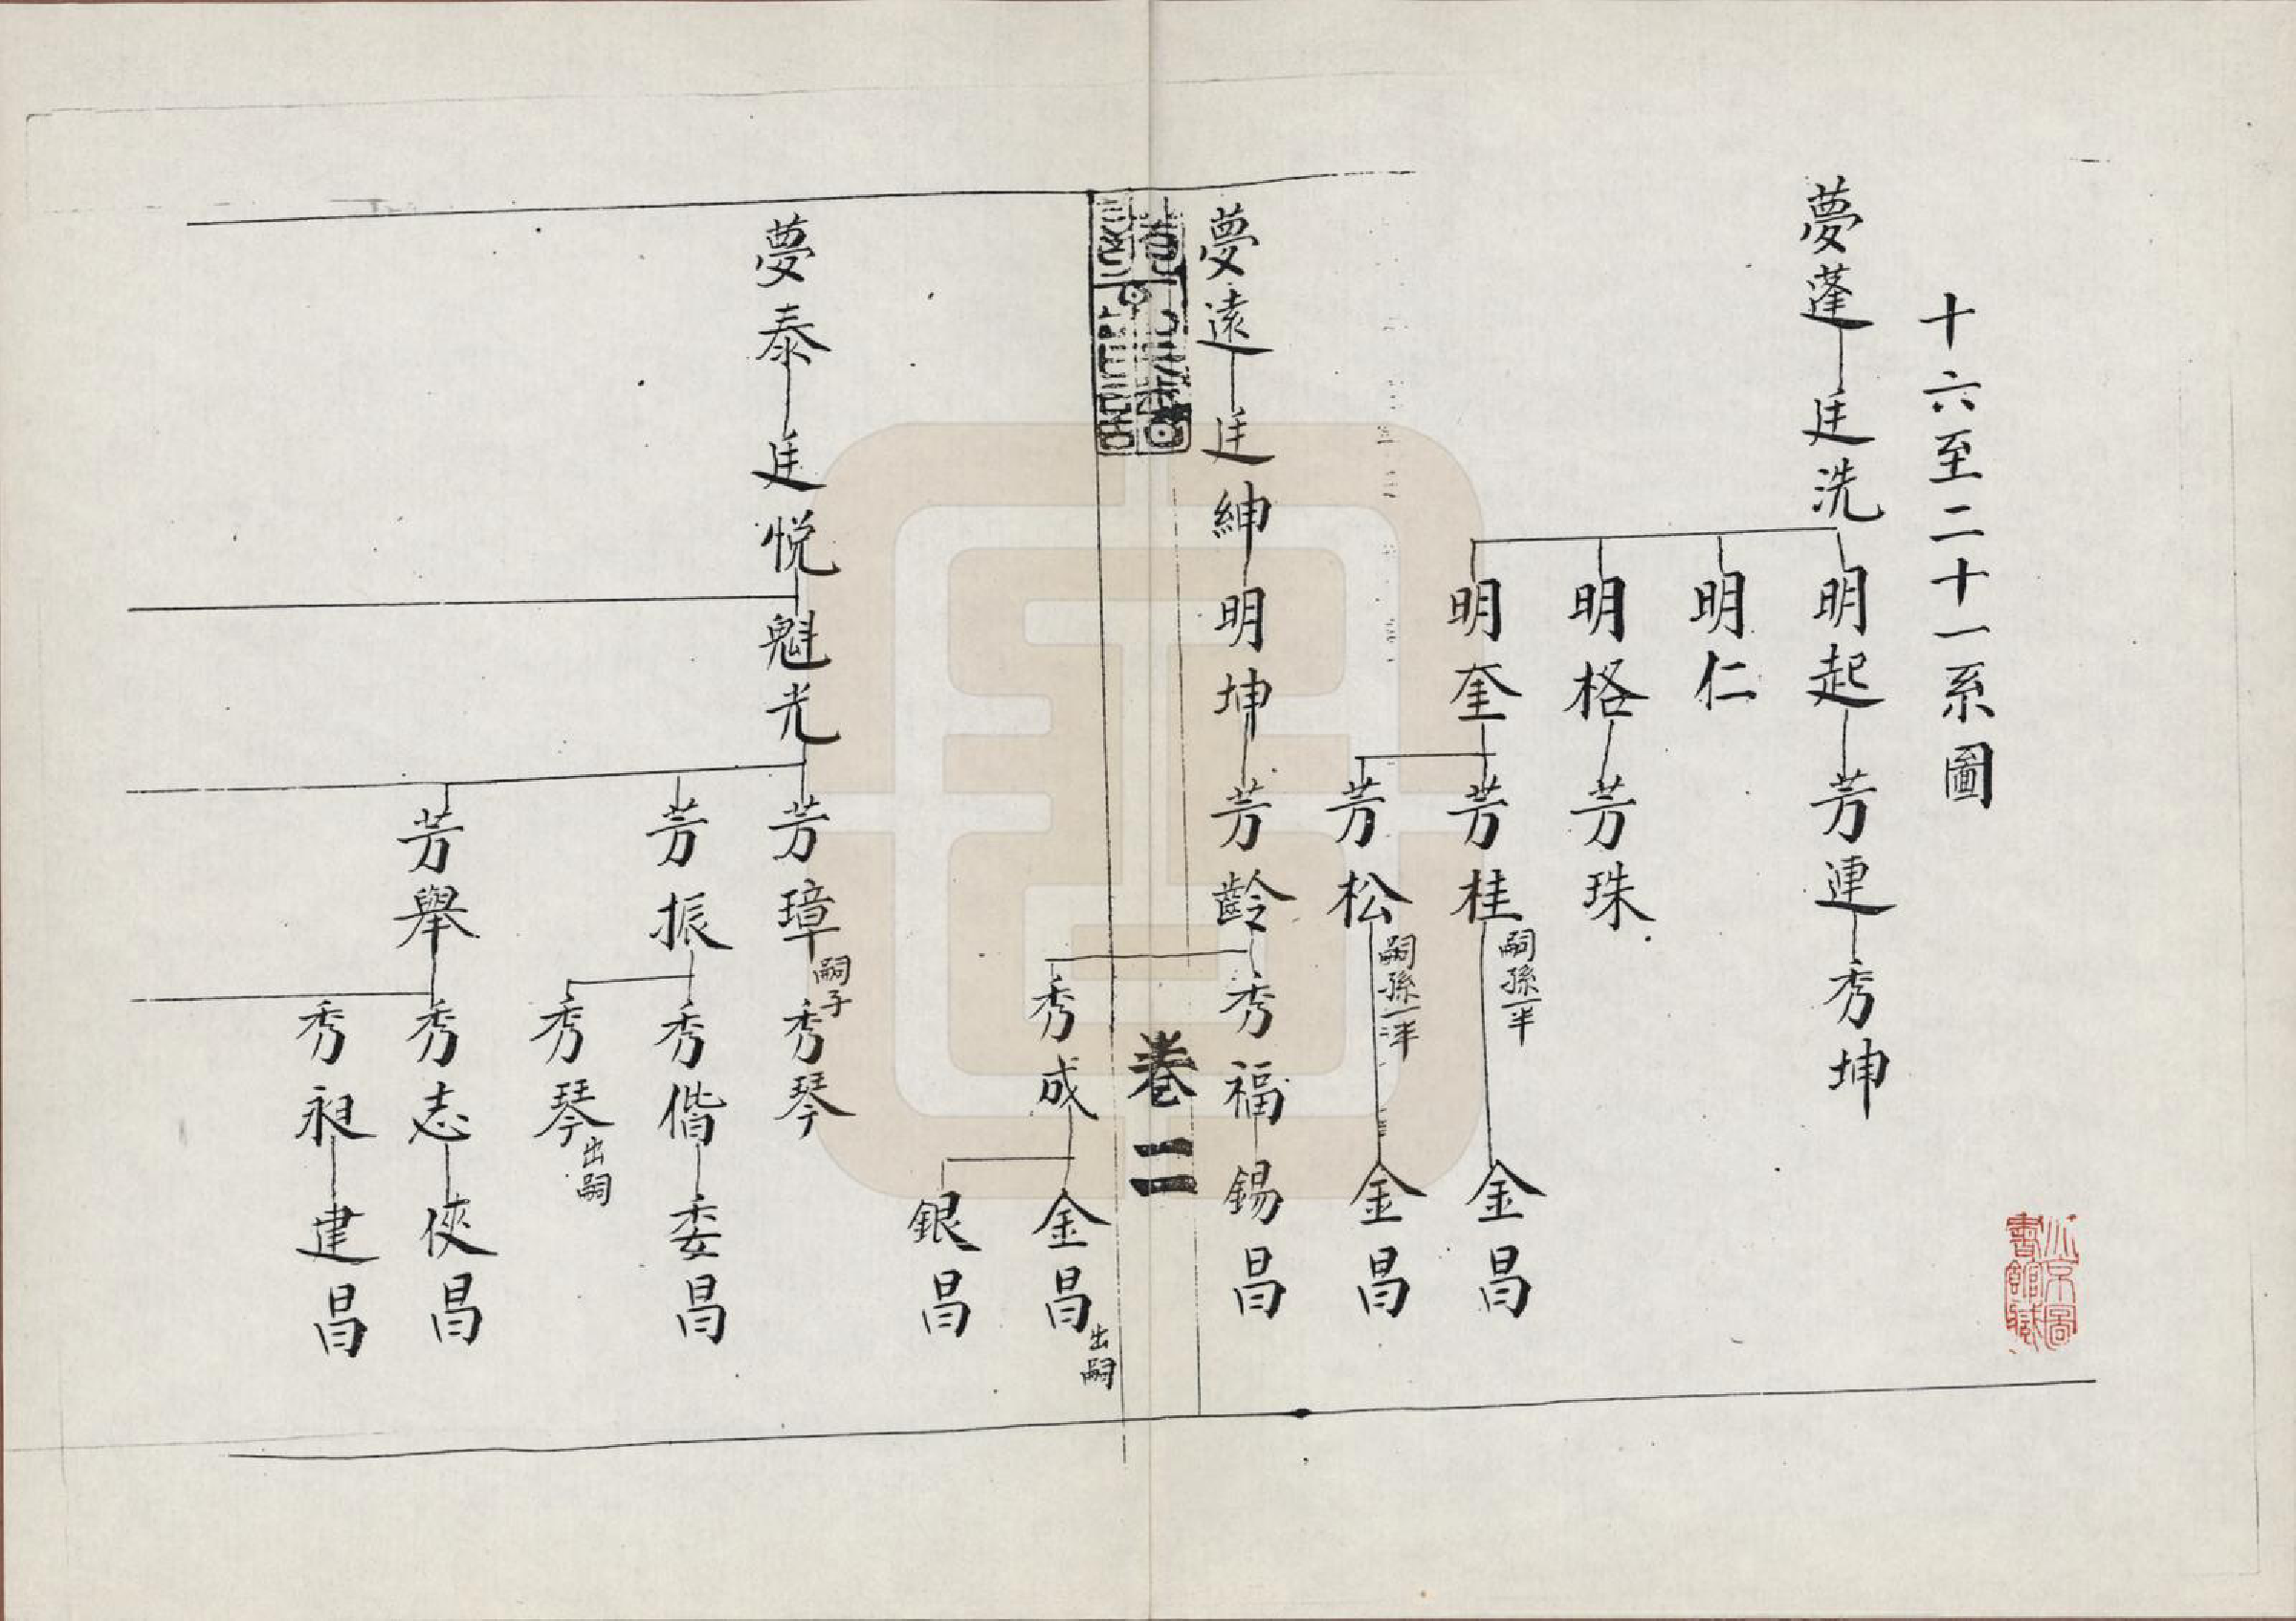 十六至二十一系圖
夢蓬 廷洗 明起 芳連 秀坤
明仁
明格 芳珠
明奎 芳桂 嗣孫一半 金昌
芳松 嗣孫一半 金昌
夢遠 廷紳 明坤 芳齡 秀福 錫昌
卷二
秀成 金昌 出嗣
銀昌
夢泰 廷悦 魁光 芳璋 嗣子 秀琴
芳振 秀偕 委昌
秀琴 出嗣
芳舉 秀志 俠昌
秀昶 建昌
北京圖
書館藏